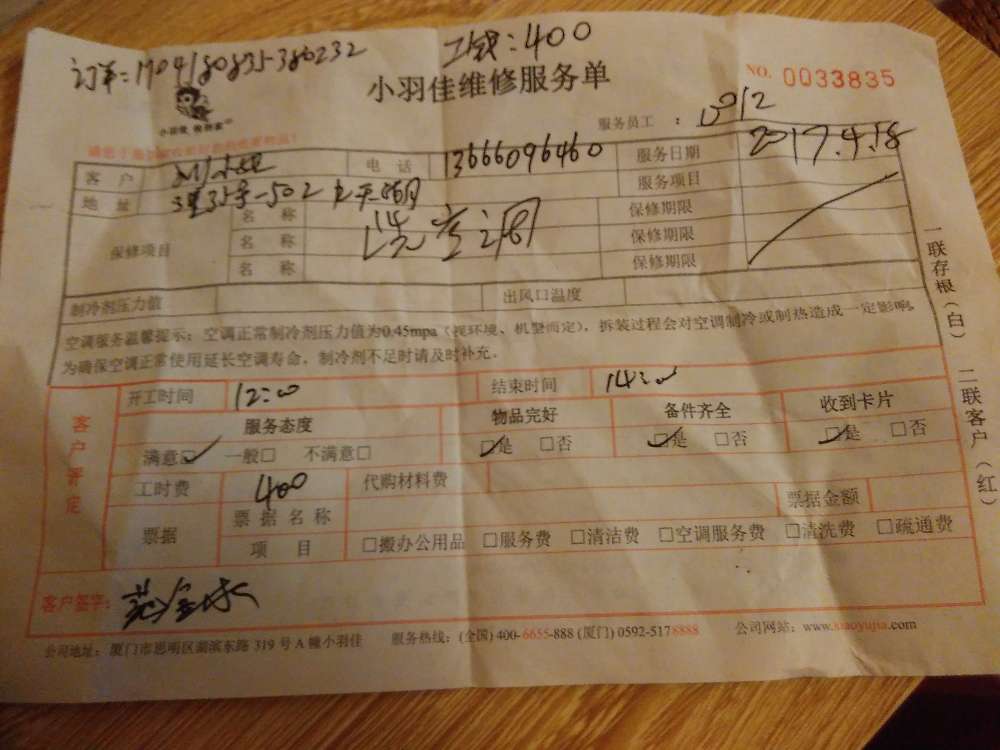 订单:170418083538
工钱:400
小羽佳维修服务单
NO. 0033835
小羽佳
服务员工 : 0012
客 户 电 话 13666096460 服务日期 2017.4.18
地 址 35号-502 服务项目
保修项目 名 称 洗空调 保修期限
名 称 保修期限
名 称 保修期限
制冷剂压力值 出风口温度
空调服务温馨提示:空调正常制冷剂压力值为0.45mpa(视环境、机型而定),拆装过程会对空调制冷或制热造成一定影响,
为确保空调正常使用延长空调寿命,制冷剂不足时请及时补充。
客户评定
开工时间 12:00 结束时间 14:00
服务态度 物品完好 备件齐全 收到卡片
满意☑ 一般□ 不满意□ ☑是 □否 ☑是 □否 ☑是 □否
工时费 400 代购材料费
票据 票据名称 票据金额
项 目 □搬办公用品 □服务费 □清洁费 □空调服务费 □清洗费 □疏通费
客户签字:
公司地址: 厦门市思明区湖滨东路 319 号 A 幢小羽佳 服务热线: (全国) 400-6655-888 (厦门) 0592-5178888 公司网站: www.xiaoyujia.com
一联存根(白) 二联客户(红)